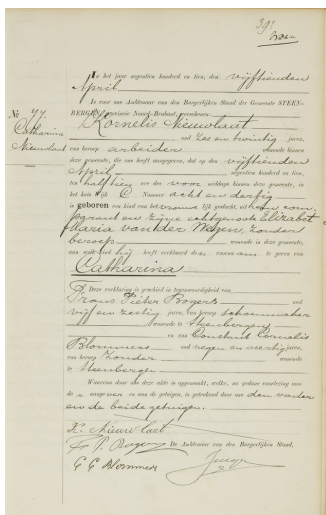 391
In het jaar negentien honderd en tien, den vijftienden
April
is voor ons Ambtenaar van den Burgerlijken Stand der Gemeente STEEN-
BERGEN, Provincie Noord-Brabant, verschenen:
Nº 77
Catharina
Nieuwlaat
Kornelis Nieuwlaat
oud zes en twintig jaren,
van beroep arbeider wonende binnen
deze gemeente, die ons heeft aangegeven, dat op den vijftienden
April negentien honderd en tien,
ten half tien ure des voor middags binnen deze gemeente, in
het huis Wijk C Nommer acht en dertig
is geboren een kind van het vrouwelijk geslacht, uit hem com-
parant en zijne echtgenoote Elizabet
Maria van der Wegen, zonder
beroep wonende in deze gemeente,
aan welk kind hij heeft verklaard den voornaam te geven van
Catharina
Deze verklaring is geschied in tegenwoordigheid van
Frans Pieter Bogers oud
vijf en zestig jaren, van beroep schoenmaker
wonende te Steenbergen
en van Constant Cornelis
Blommers oud negen en veertig jaren,
van beroep zonder wonende
te Steenbergen
Waarvan door ons deze akte is opgemaakt, welke, na gedane voorlezing aan
de aangever en aan de getuigen, is geteekend door ons den vader
en de beide getuigen.
K. Nieuwlaat
F. P. Bogers
De Ambtenaar van den Burgerlijken Stand,
C C Blommers